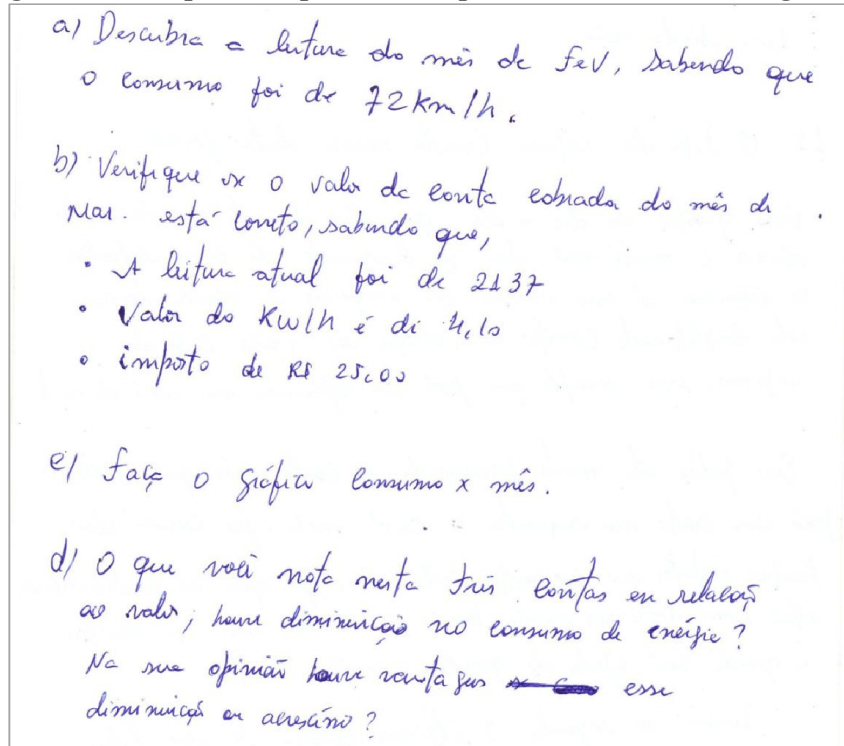 a) Descubra a leitura do mês de fev, sabendo que
o consumo foi de 72 km/h.
b) Verifique se o valor da conta cobrada do mês de
Mar. está correto, sabendo que,
• A leitura atual foi de 2137
• Valor do Kw/h é di 4,10
• imposto de R$ 25,00
c) faça o gráfico consumo x mês.
d) O que você nota nesta três contas em relação
ao valor, houve diminuição no consumo de energia?
Na sua opinião houve vantagens esse
diminuição ou acréscimo?